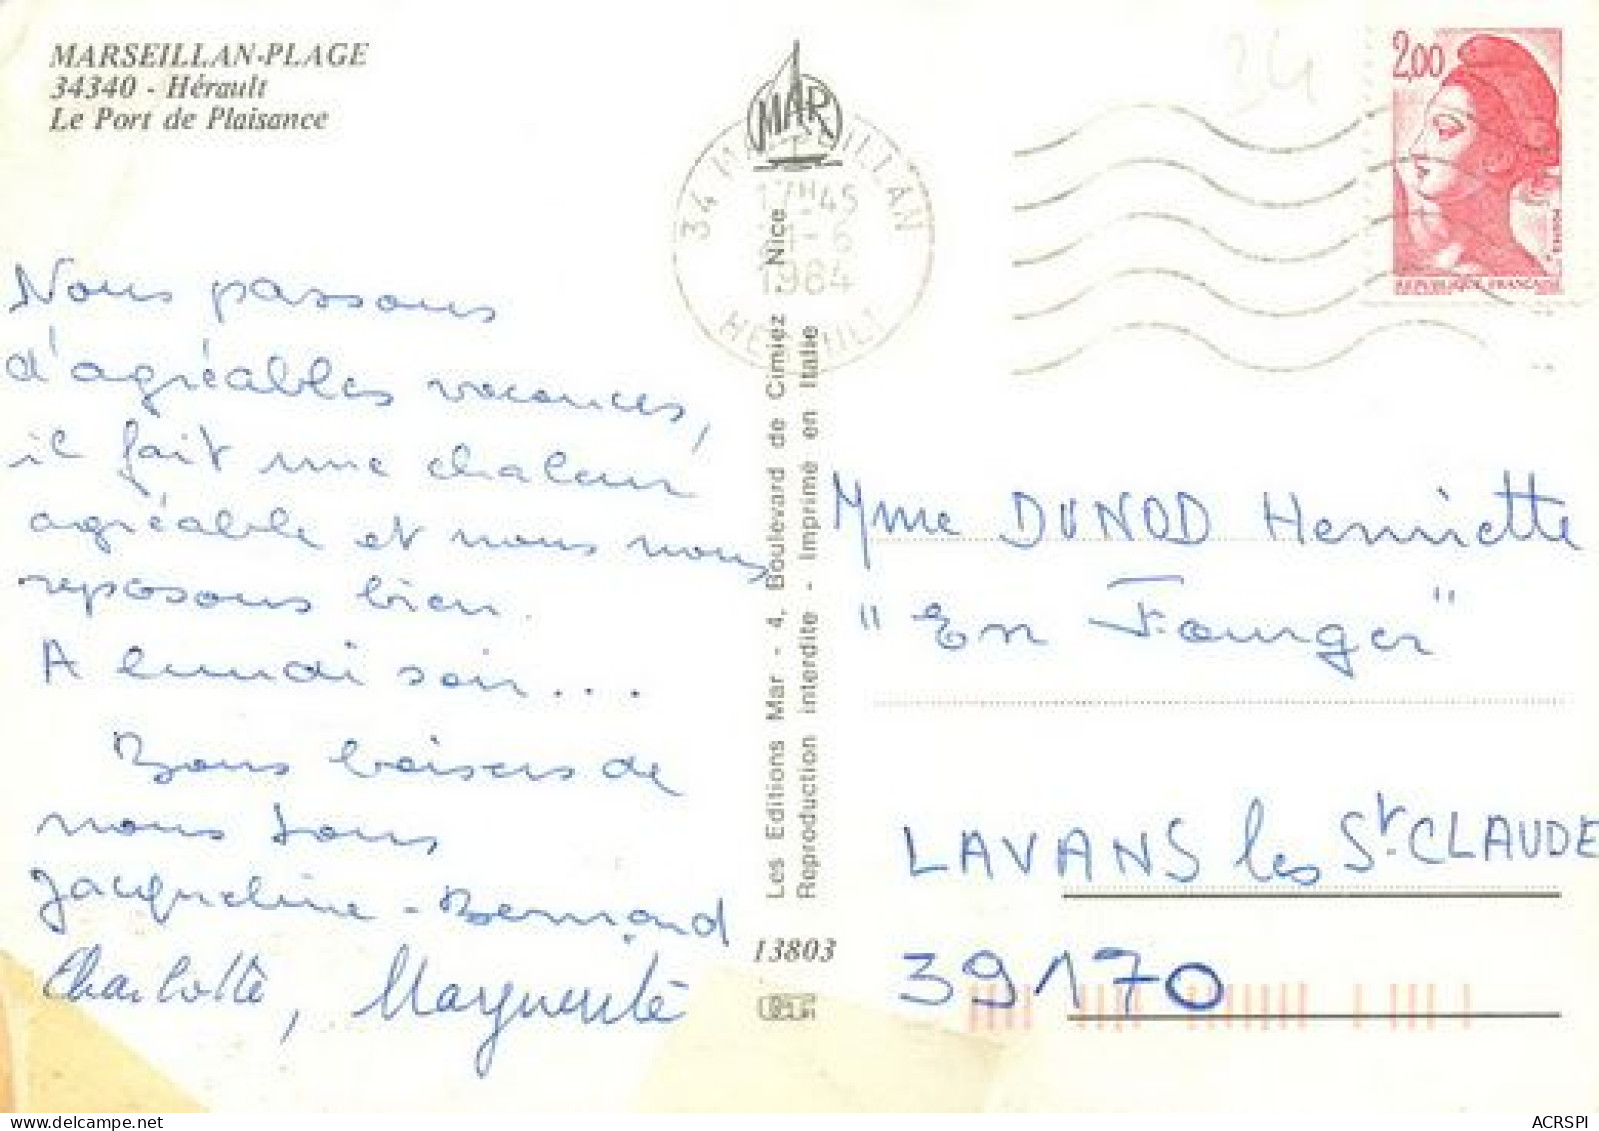 MARSEILLAN-PLAGE
34340 - Hérault
Le Port de Plaisance
Nous passons
d'agréables vacances,
il fait une chaleur
agréable et nous nous
reposons bien.
A lundi soir...
Bons baisers de
nous tous
Jacqueline - Bernard
Charlotte, Marguerite
MAR
34 MARSEILLAN
17H45
-6
1984
HERAULT
Les Editions Mar - 4, Boulevard de Cimiez Nice
Reproduction interdite - Imprimé en Italie
13803
34
2,00
REPUBLIQUE FRANÇAISE
Mme DUNOD Henriette
"En Fourger"
LAVANS les St. CLAUDE
39170
ACRSPI